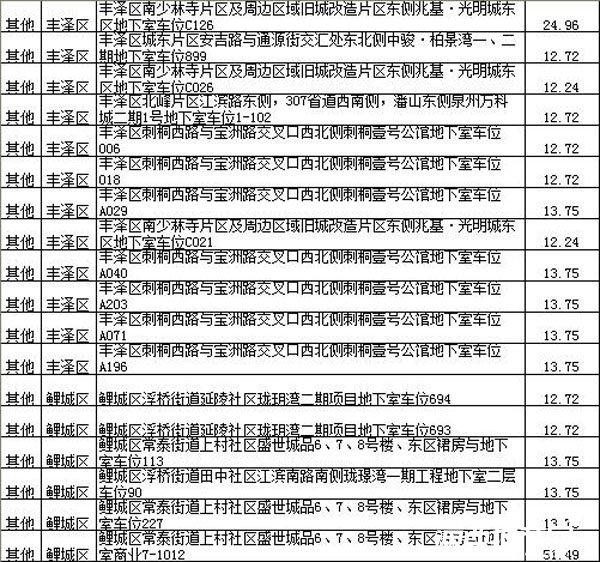 丰泽区南少林寺片区及周边区域旧城改造片区东侧兆基·光明城东
其他 丰泽区 区地下室车位C126 24.96
丰泽区城东片区安吉路与通源街交汇处东北侧中骏·柏景湾一、二
其他 丰泽区 期地下室车位899 12.72
丰泽区南少林寺片区及周边区域旧城改造片区东侧兆基·光明城东
其他 丰泽区 区地下室车位C026 12.24
丰泽区北峰片区江滨路东侧，307省道西南侧，潘山东侧泉州万科
其他 丰泽区 城二期1号地下室车位1-102 12.72
丰泽区刺桐西路与宝洲路交叉口西北侧刺桐壹号公馆地下室车位
其他 丰泽区 006 12.72
丰泽区刺桐西路与宝洲路交叉口西北侧刺桐壹号公馆地下室车位
其他 丰泽区 018 12.72
丰泽区刺桐西路与宝洲路交叉口西北侧刺桐壹号公馆地下室车位
其他 丰泽区 A029 13.75
丰泽区南少林寺片区及周边区域旧城改造片区东侧兆基·光明城东
其他 丰泽区 区地下室车位C021 12.24
丰泽区刺桐西路与宝洲路交叉口西北侧刺桐壹号公馆地下室车位
其他 丰泽区 A040 13.75
丰泽区刺桐西路与宝洲路交叉口西北侧刺桐壹号公馆地下室车位
其他 丰泽区 A203 13.75
丰泽区刺桐西路与宝洲路交叉口西北侧刺桐壹号公馆地下室车位
其他 丰泽区 A071 13.75
丰泽区刺桐西路与宝洲路交叉口西北侧刺桐壹号公馆地下室车位
其他 丰泽区 A196 13.75
其他 鲤城区 鲤城区浮桥街道延陵社区珑玥湾二期项目地下室车位694 12.72
其他 鲤城区 鲤城区浮桥街道延陵社区珑玥湾二期项目地下室车位693 12.72
鲤城区常泰街道上村社区盛世诚品6、7、8号楼、东区裙房与地下
其他 鲤城区 室车位113 13.75
鲤城区浮桥街道田中社区江滨南路南侧珑璟湾一期工程地下室二层
其他 鲤城区 车位90 13.75
鲤城区常泰街道上村社区盛世诚品6、7、8号楼、东区裙房与地下
其他 鲤城区 室车位227
鲤城区常泰街道上村社区盛世诚品6、7、8号楼、东区
其他 鲤城区 室商业7-1012 51.49